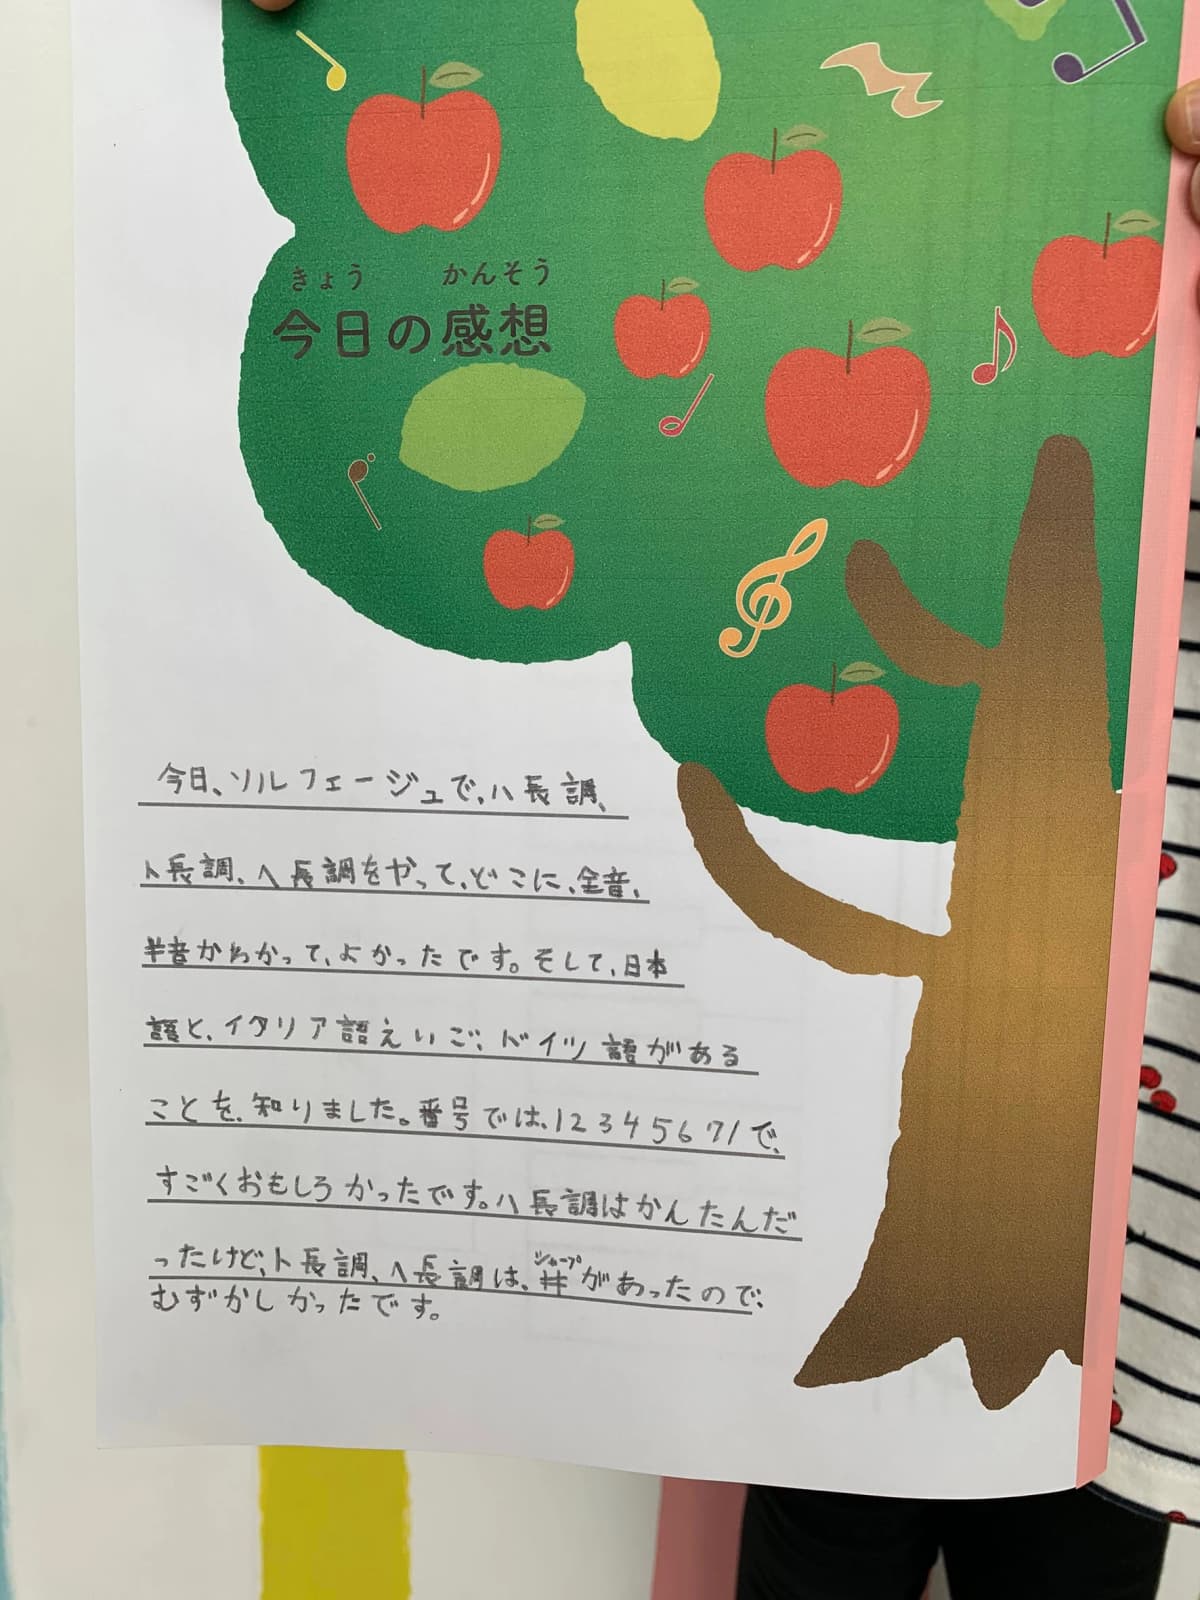 きょう かんそう
今日の感想
今日、ソルフェージュで、ハ長調、
ト長調、ヘ長調をやって、どこに、全音、
半音かわかって、よかったです。そして、日本
語と、イタリア語えいご、ドイツ語がある
ことを、知りました。番号では、12345671で、
すごくおもしろかったです。ハ長調はかんたんだ
シャープ
ったけど、ト長調、ヘ長調は、#があったので、
むずかしかったです。